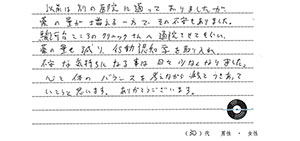 以前は別の医院に通っておりましたが、
薬の量が増える一方で、その不安もありました。
こころのクリニックさんへ通院させてもらい、
薬の量も減り、行動認知学を取り入れ、
不安な気持ちになる事は日々少なくなりました。
心と体のバランスを考えながら病とつきあって
いこうと思います。ありがとうございます。
(30)代 男性・女性